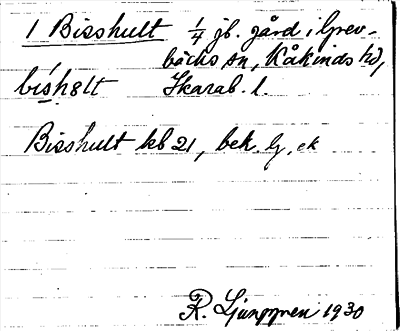 1 Bisshult 1/4 jb. gård i Grev-
bäcks sn, Kåkinds hd,
bíshɵlt Skarab. l.
Bisshult kb 21, bek. lj, ek
R. Ljunggren 1930